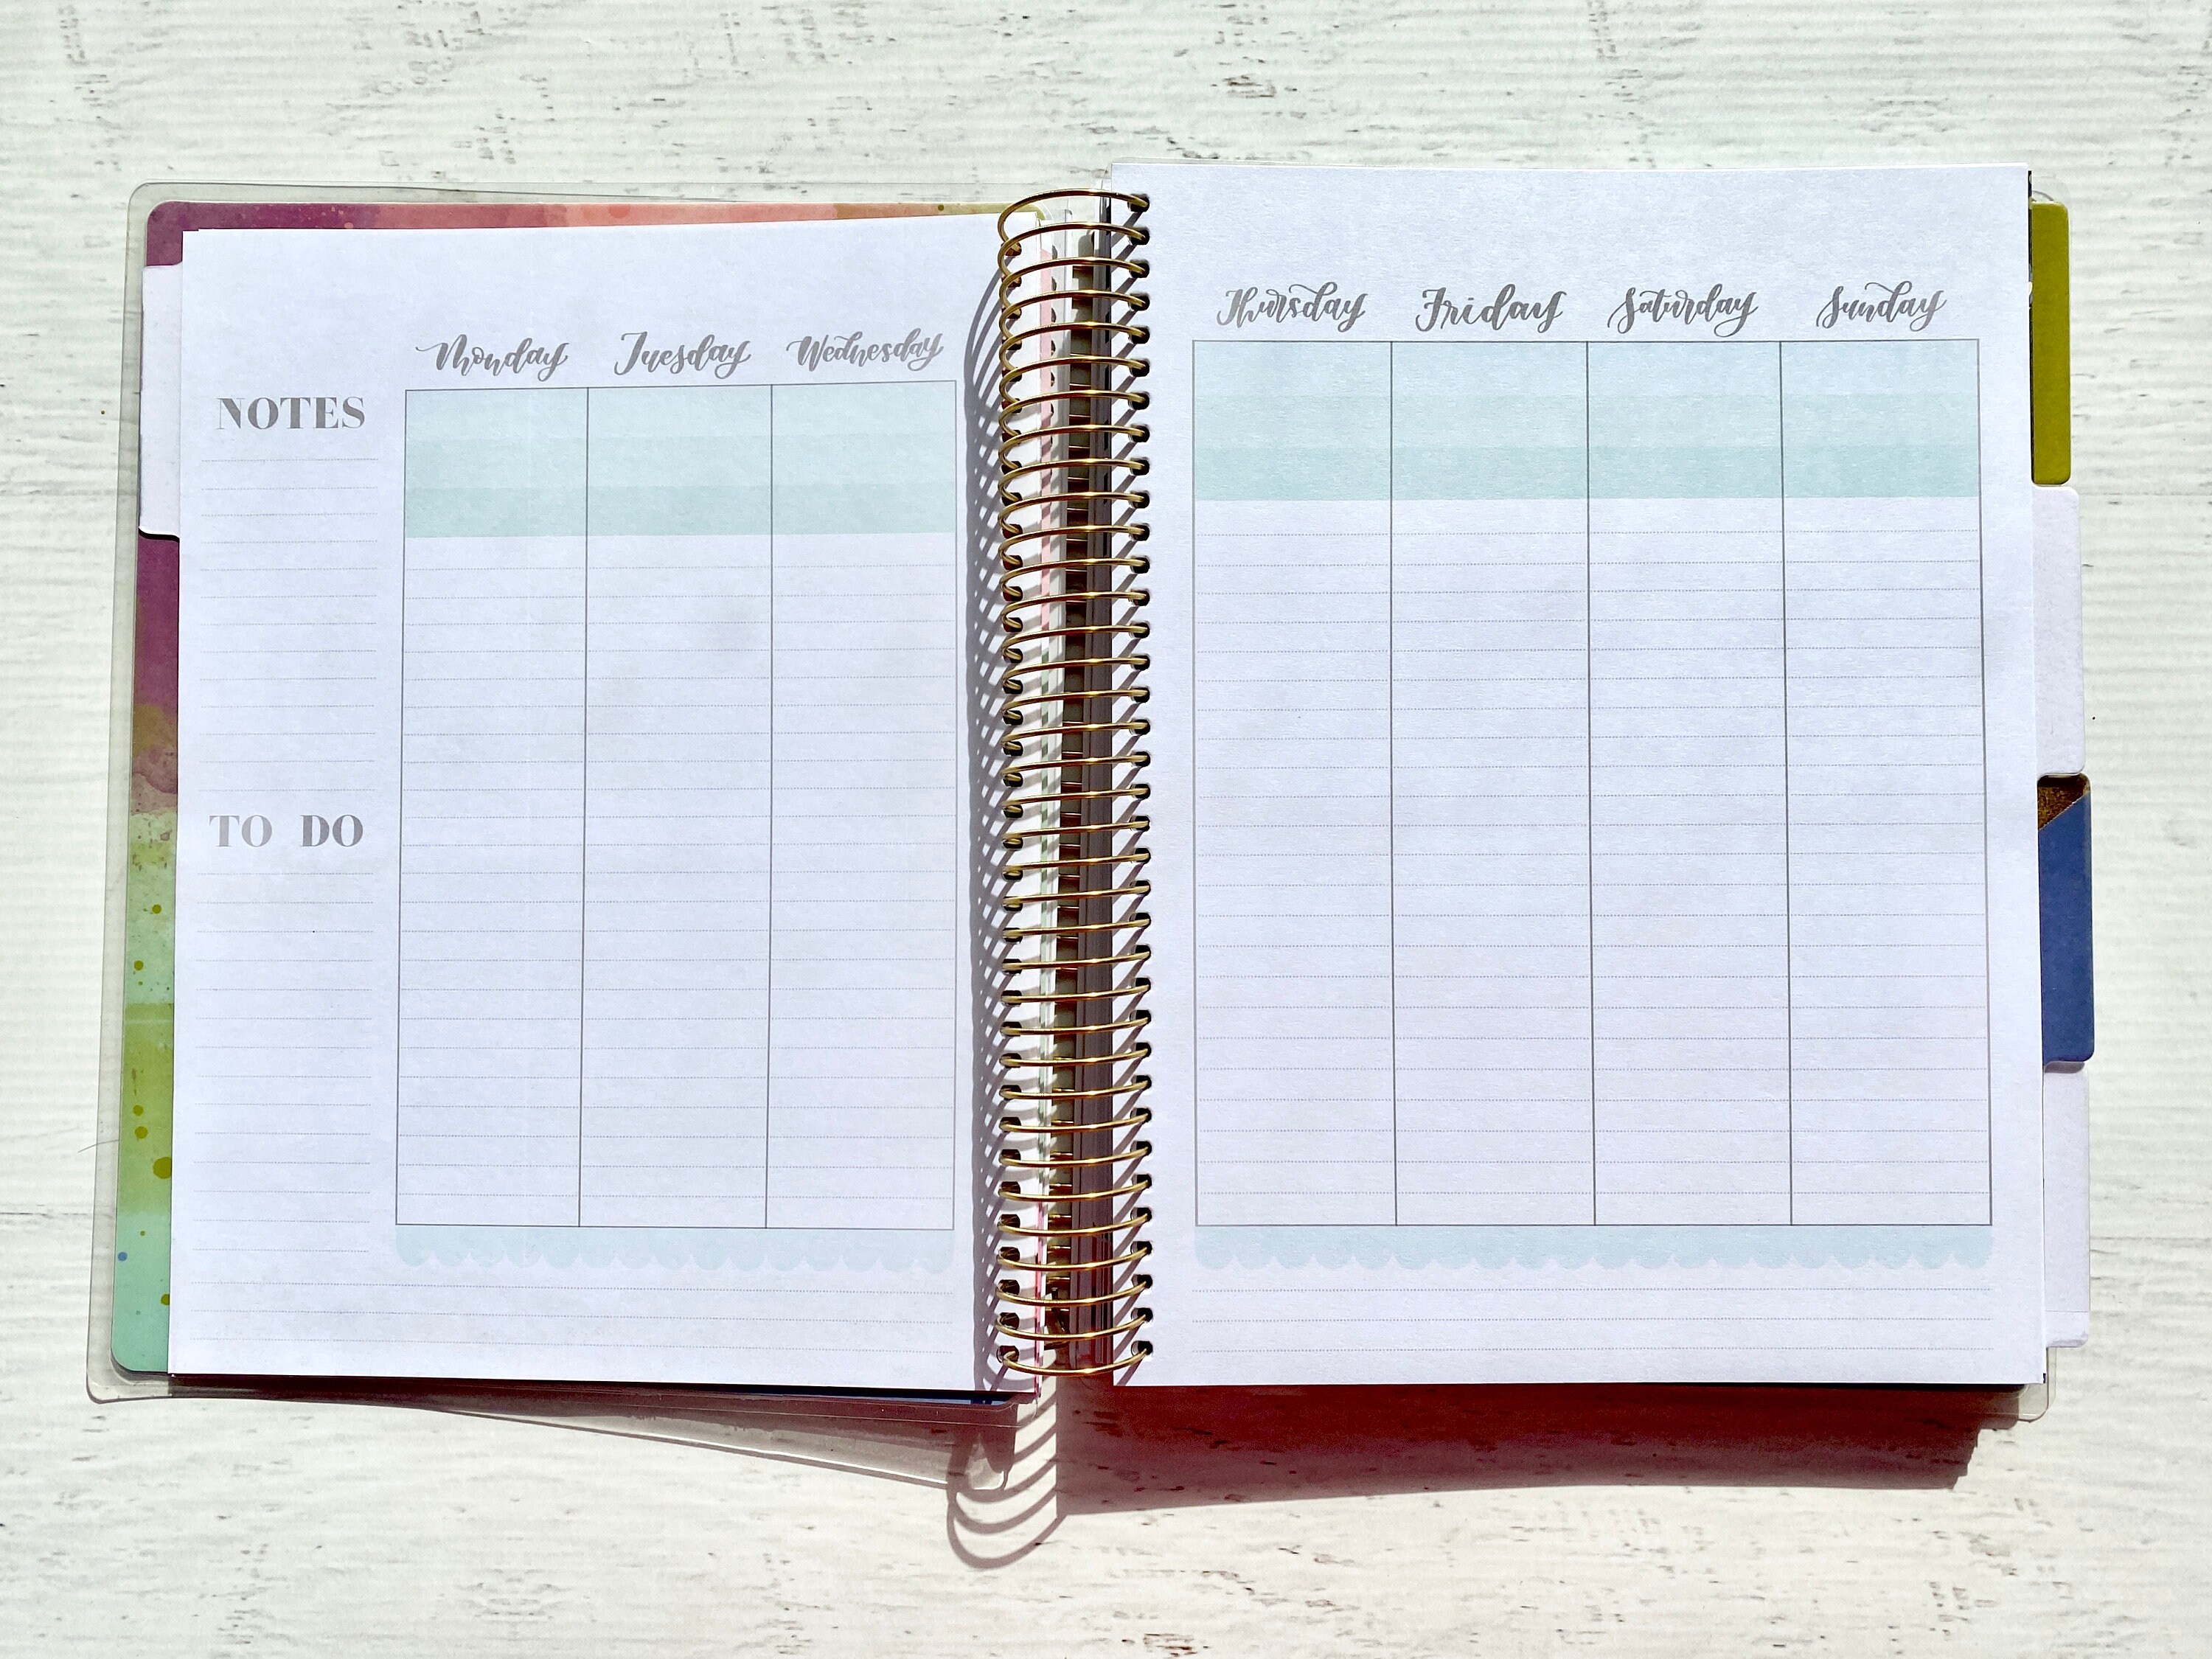 Monday Tuesday Wednesday
NOTES
TO DO
Thursday Friday Saturday Sunday